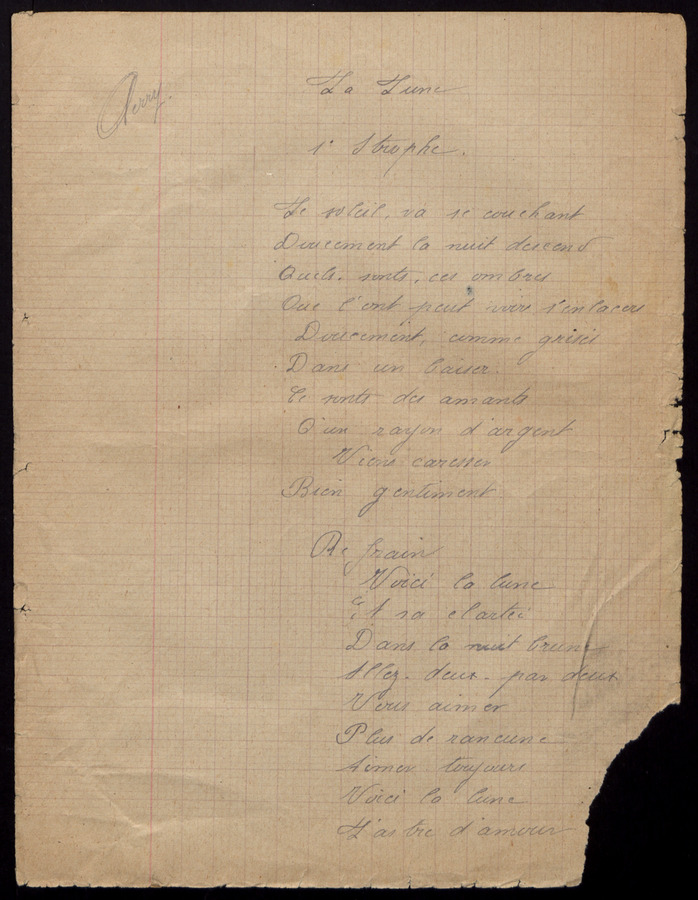 La Lune
1e Strophe.
Le soleil, va se couchant
Doucement la nuit descend
Quels. sonts, ces ombres
Que l'ont peut voir s'enlacers
Doucement, comme grisés
Dans un baiser.
Ce sonts des amants
Q'un rayon d'argent
Viens caresser
Bien gentiment
Refrain
Voici la lune
Et sa clartée
Dans la nuit brune
Allez. deux. par deux
Vous aimer
Plus de rancune
Aimer toujours
Voici la lune
L'astre d'amour